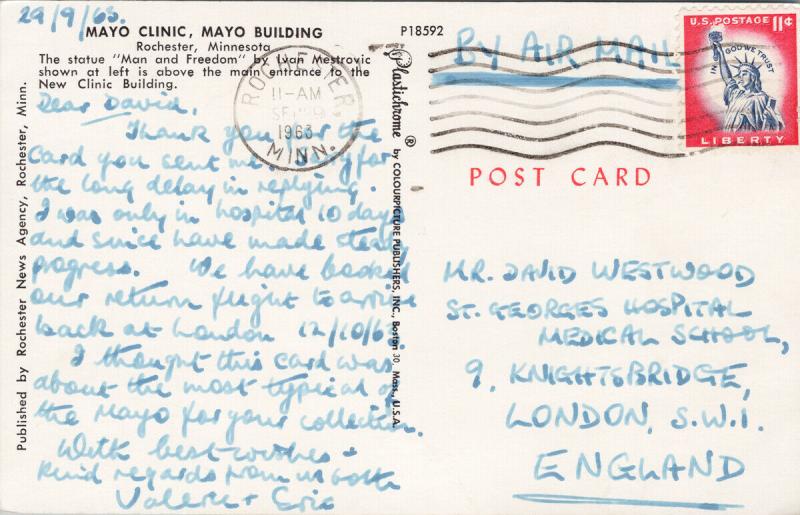 29/9/63.
MAYO CLINIC, MAYO BUILDING
Rochester, Minnesota
The statue "Man and Freedom" by Ivan Mestrovic
shown at left is above the main entrance to the
New Clinic Building.
Dear David,
Thank you for the
Card you sent me. Sorry for
the long delay in replying.
I was only in hospital 10 days
and since have made steady
progress. We have booked
our return flight to arrive
back at London 12/10/63.
I thought this card was
about the most typical of
the Mayo for your collection.
With best wishes &
kind regards from us both
Valerie + Eric
Published by Rochester News Agency, Rochester, Minn.
P18592
Plastichrome ® by COLOURPICTURE PUBLISHERS, INC., Boston 30, Mass., U.S.A.
ROCHESTER
11-AM
SEP 29
1963
MINN.
BY AIR MAIL
U.S. POSTAGE 11¢
IN GOD WE TRUST
LIBERTY
POST CARD
MR. DAVID WESTWOOD
ST. GEORGES HOSPITAL
MEDICAL SCHOOL,
9, KNIGHTSBRIDGE,
LONDON, S.W.1.
ENGLAND